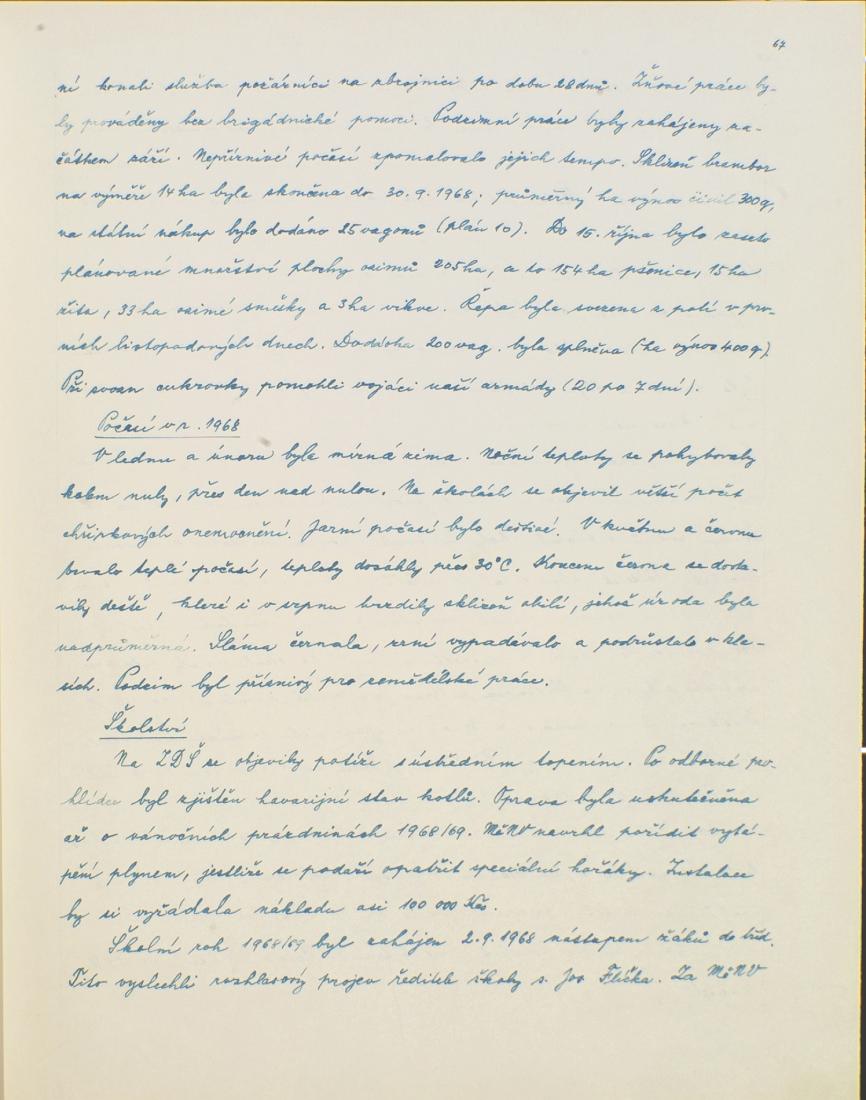 67
ní konali službu požárníci na zbrojnici po dobu 28 dnů. Žňové práce by-
ly prováděny bez brigádnické pomoci. Podzimní práce byly zahájeny za-
čátkem září. Nepříznivé počasí zpomalovalo jejich tempo. Sklizeň brambor
na výměře 14 ha byla skončena do 30. 9. 1968; průměrný ha výnos činil 300 q,
na státní nákup bylo dodáno 25 vagonů (plán 10). Do 15. října bylo zaseto
plánované množství plochy ozimů 205 ha, a to 154 ha pšenice, 15 ha
žita, 33 ha ozimé směsky a 3 ha vikve. Řepa byla svezena z polí v prv-
ních listopadových dnech. Dodávka 200 vag. byla splněna (ha výnos 400 q).
Při svozu cukrovky pomohli vojáci naší armády (20 po 7 dní).
Počasí v r. 1968
V lednu a únoru byla mírná zima. Noční teploty se pohybovaly
kolem nuly, přes den nad nulou. Na školách se objevil větší počet
chřipkových onemocnění. Jarní počasí bylo deštivé. V květnu a červnu
trvalo teplé počasí, teploty dosáhly přes 30°C. Koncem června se dosta-
vily deště, které i v srpnu brzdily sklizeň obilí, jehož úroda byla
nadprůměrná. Sláma černala, zrní vypadávalo a podrůstalo v kla-
sích. Podzim byl příznivý pro zemědělské práce.
Školství
Na ZDŠ se objevily potíže s ústředním topením. Po odborné pro-
hlídce byl zjištěn havarijní stav kotlů. Oprava byla uskutečněna
až o vánočních prázdninách 1968/69. MěNV navrhl pořídit vytá-
pění plynem, jestliže se podaří opatřit speciální hořáky. Instalace
by si vyžádala nákladu asi 100 000 Kčs.
Školní rok 1968/69 byl zahájen 2. 9. 1968 nástupem žáků do tříd.
Tito vyslechli rozhlasový projev ředitele školy s. Jos Flíčka. Za MěNV